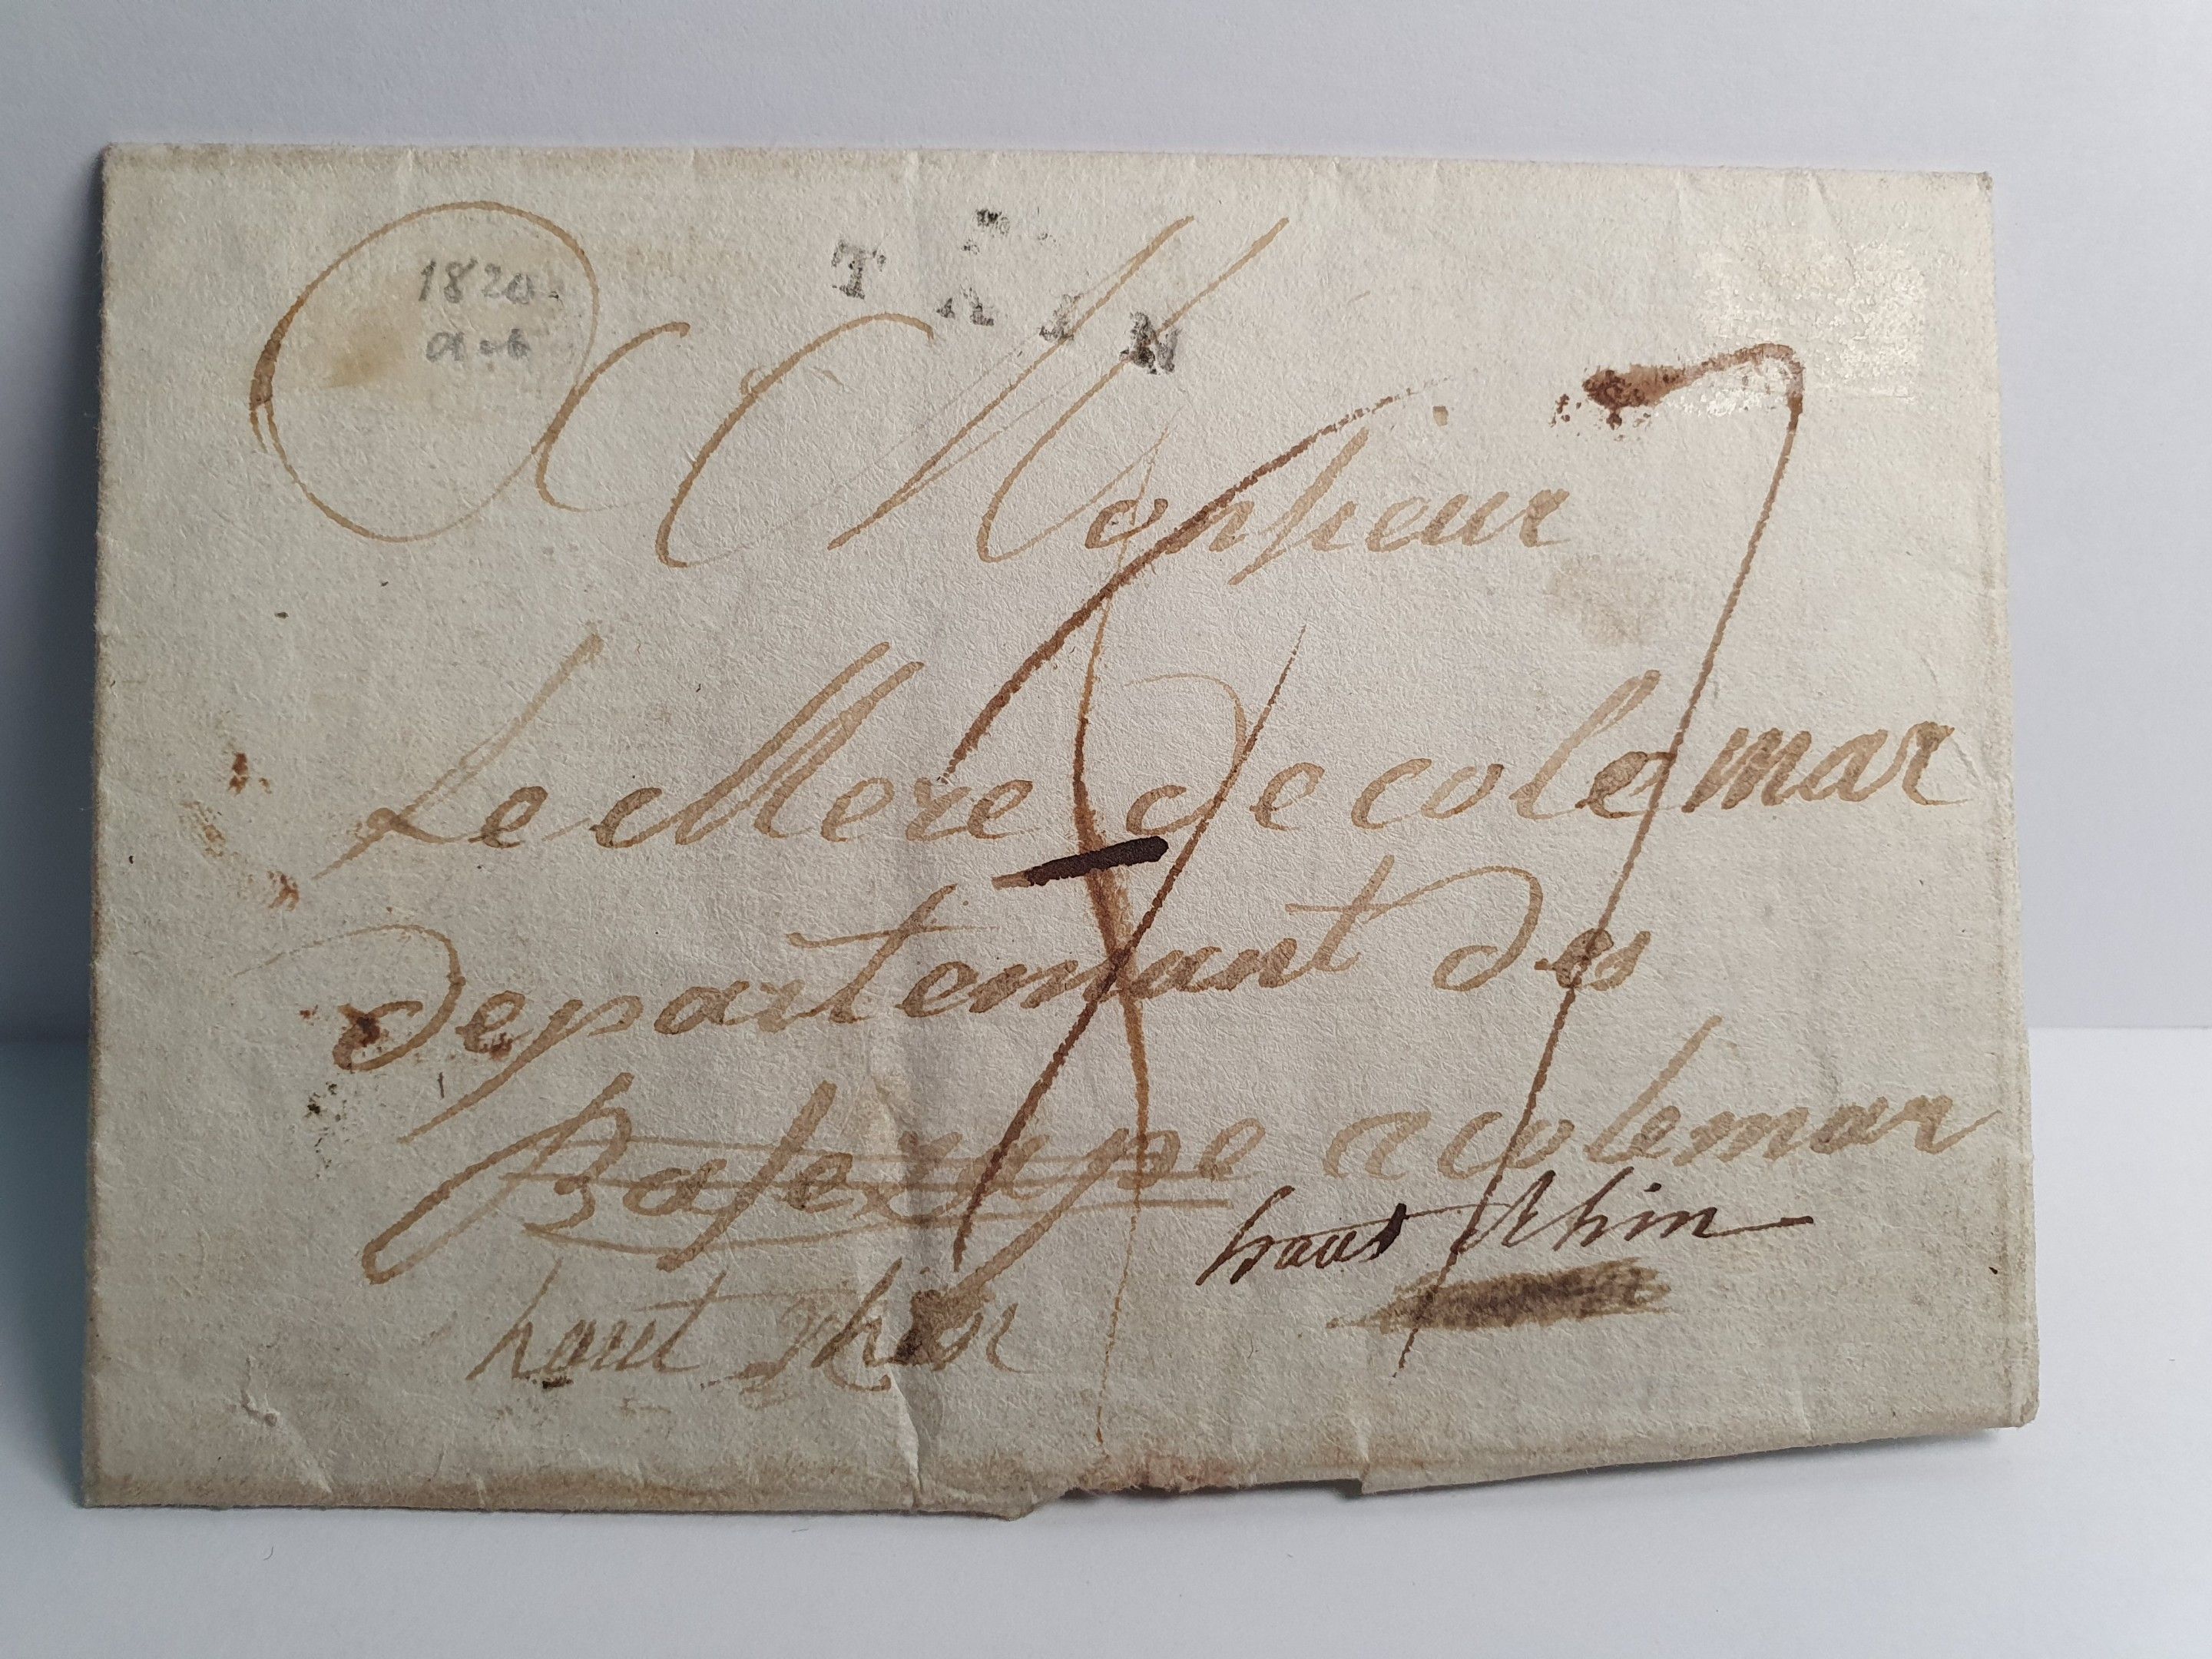 1820
TAIN
A Monsieur
Le Mere de colemar
departemant des
Baserupe a colemar
haut Rhin
haut Rhin